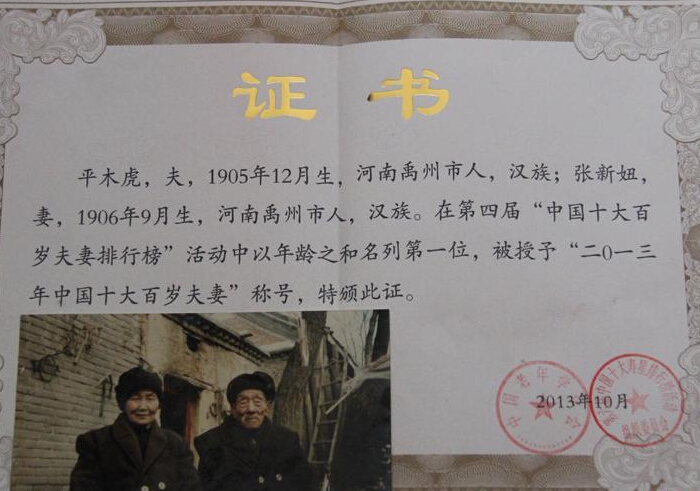 证书
平木虎，夫，1905年12月生，河南禹州市人，汉族；张新妞，
妻，1906年9月生，河南禹州市人，汉族。在第四届“中国十大百
岁夫妻排行榜”活动中以年龄之和名列第一位，被授予“二〇一三
年中国十大百岁夫妻”称号，特颁此证。
中国老年学学会
2013年10月